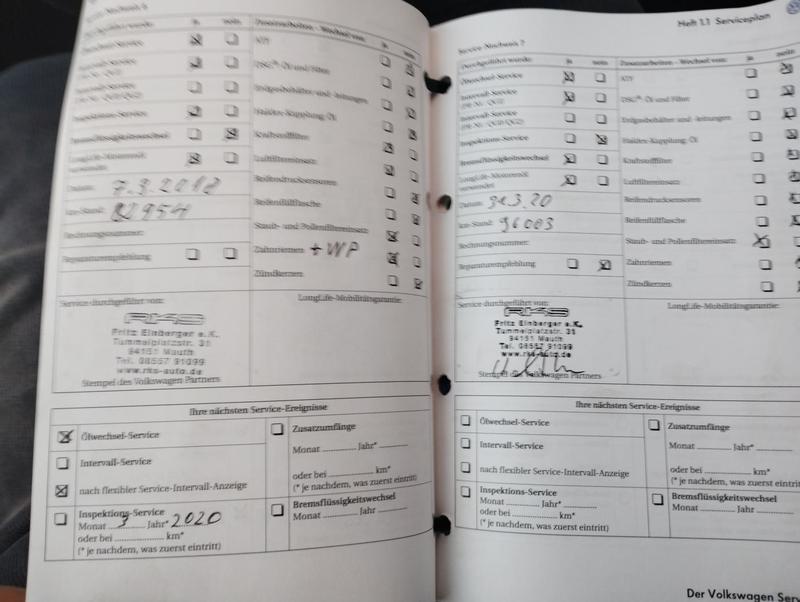 Service-Nachweis 6
Durchgeführt wurde: ja nein
Ölwechsel-Service
Intervall-Service
Intervall-Service
Inspektions-Service
Bremsflüssigkeitswechsel
LongLife-Motorenöl
verwendet
Datum: 7.3.2018
km-Stand: 82954
Rechnungsnummer:
Reparaturempfehlung
Zusatzarbeiten - Wechsel von: ja nein
ATF
DSG®-Öl und Filter
Erdgasbehälter und -leitungen
Haldex-Kupplung: Öl
Kraftstofffilter
Luftfiltereinsatz
Reifendrucksensoren
Reifenfüllflasche
Staub- und Pollenfiltereinsatz
Zahnriemen + WP
Zündkerzen
Service durchgeführt von:
RKS
Fritz Einberger e.K.
Tummelplatzstr. 31
94151 Mauth
Tel. 08557 91099
www.rks-auto.de
Stempel des Volkswagen Partners
LongLife-Mobilitätsgarantie:
Ihre nächsten Service-Ereignisse
Ölwechsel-Service
Intervall-Service
nach flexibler Service-Intervall-Anzeige
Inspektions-Service
Monat 3 Jahr* 2020
oder bei km*
(* je nachdem, was zuerst eintritt)
Zusatzumfänge
Monat Jahr*
oder bei km*
(* je nachdem, was zuerst eintritt)
Bremsflüssigkeitswechsel
Monat Jahr
Heft 1.1 Serviceplan
Service-Nachweis 7
Durchgeführt wurde: ja nein
Ölwechsel-Service
Intervall-Service
Intervall-Service
Inspektions-Service
Bremsflüssigkeitswechsel
LongLife-Motorenöl
verwendet
Datum:
km-Stand: 96003
Rechnungsnummer:
Reparaturempfehlung
Zusatzarbeiten - Wechsel von: ja nein
ATF
DSG®-Öl und Filter
Erdgasbehälter und -leitungen
Haldex-Kupplung: Öl
Kraftstofffilter
Luftfiltereinsatz
Reifendrucksensoren
Reifenfüllflasche
Staub- und Pollenfiltereinsatz
Zahnriemen
Zündkerzen
Service durchgeführt von:
RKS
Fritz Einberger e.K.
Tummelplatzstr. 31
94151 Mauth
Tel. 08557 91099
www.rks-auto.de
Stempel des Volkswagen Partners
LongLife-Mobilitätsgarantie:
Ihre nächsten Service-Ereignisse
Ölwechsel-Service
Intervall-Service
nach flexibler Service-Intervall-Anzeige
Inspektions-Service
Monat Jahr*
oder bei km*
(* je nachdem, was zuerst eintritt)
Zusatzumfänge
Monat Jahr*
oder bei km*
(* je nachdem, was zuerst eintritt)
Bremsflüssigkeitswechsel
Monat Jahr
Der Volkswagen Serv